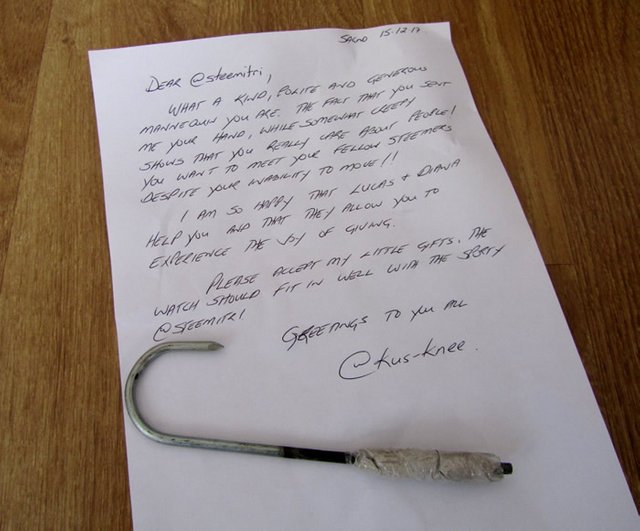 SAGND 15-12-17
DEAR @STEEMITRI,
WHAT A KIND, POLITE AND GENEROUS
MANNEQUIN YOU ARE. THE FACT THAT YOU SENT
ME YOUR HAND, WHILE SOMEWHAT CREEPY
SHOWS THAT YOU REALLY CARE ABOUT PEOPLE!
YOU WANT TO MEET YOUR FELLOW STEEMERS
DESPITE YOUR INABILITY TO MOVE!!
I AM SO HAPPY THAT LUCAS + DIANA
HELP YOU AND THAT THEY ALLOW YOU TO
EXPERIENCE THE JOY OF GIVING.
PLEASE ACCEPT MY LITTLE GIFTS. THE
WATCH SHOULD FIT IN WELL WITH THE SPORTY
@STEEMITRI
GREETINGS TO YOU ALL
@kus-knee.